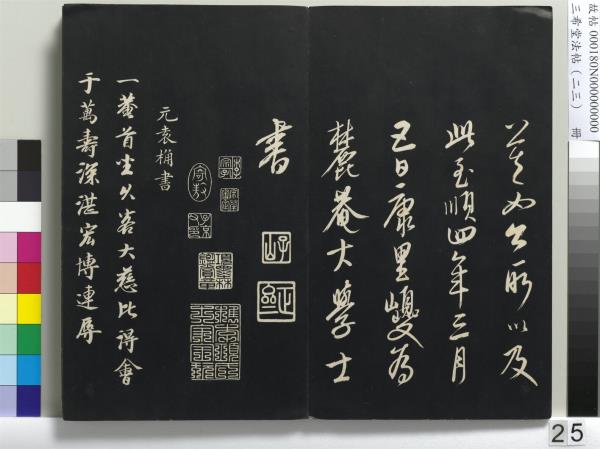 故帖 000180N000000000
三希堂法帖（二三） 冊
所以及
此至順四年三月
五日康里巎為
麓菴大學士
書
元袁桷書
一菴首坐久客大慈比得會
于萬壽深湛宏博連辱
25